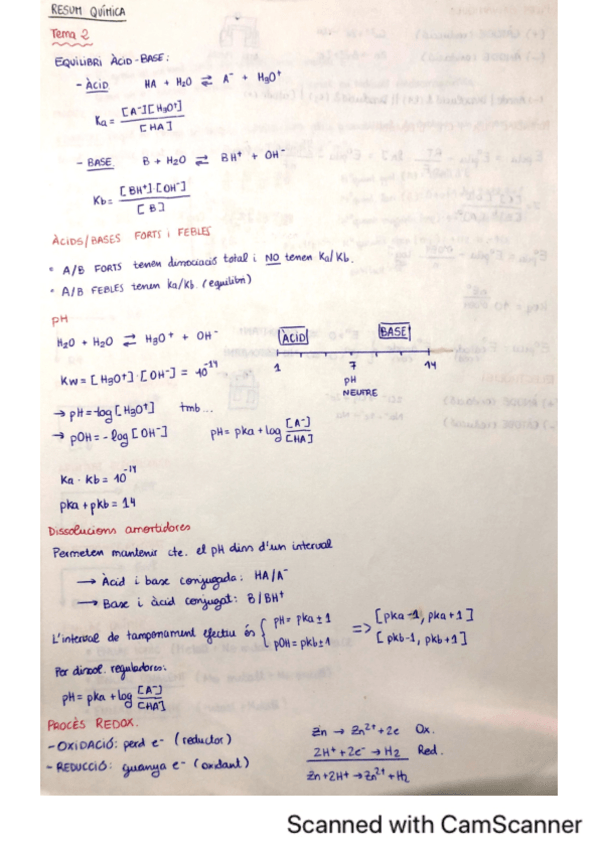 RESUM QUÍMICA
Tema 2
EQUILIBRI ÀCID-BASE:
- ÀCID HA + H2O ⇄ A⁻ + H3O⁺
Ka = [A⁻][H3O⁺] / [HA]
- BASE B + H2O ⇄ BH⁺ + OH⁻
Kb = [BH⁺]·[OH⁻] / [B]
ÀCIDS/BASES FORTS i FEBLES
• A/B FORTS tenen dissociació total i NO tenen Ka/Kb.
• A/B FEBLES tenen ka/kb. (equilibri)
pH
H2O + H2O ⇄ H3O⁺ + OH⁻
ÀCID BASE
1 7 14
pH
NEUTRE
Kw = [H3O⁺]·[OH⁻] = 10⁻¹⁴
→ pH = -log [H3O⁺] tmb...
→ pOH = - log [OH⁻] pH = pka + log [A⁻] / [HA]
Ka · Kb = 10⁻¹⁴
pka + pkb = 14
Dissolucions amortidores
Permeten mantenir cte. el pH dins d'un interval
→ Àcid i base conjugada: HA/A⁻
→ Base i àcid conjugat: B/BH⁺
L'interval de tamponament efectiu és { pH = pka ± 1 => [pka-1, pka+1]
pOH = pkb ± 1 [pkb-1, pkb+1]
Per dissol. reguladores:
pH = pka + log [A⁻] / [HA]
PROCÈS REDOX.
- OXIDACIÓ: perd e⁻ (reductor)
- REDUCCIÓ: guanya e⁻ (oxidant)
Zn → Zn²⁺ + 2e Ox.
2H⁺ + 2e⁻ → H2 Red.
Zn + 2H⁺ → Zn²⁺ + H2
Scanned with CamScanner